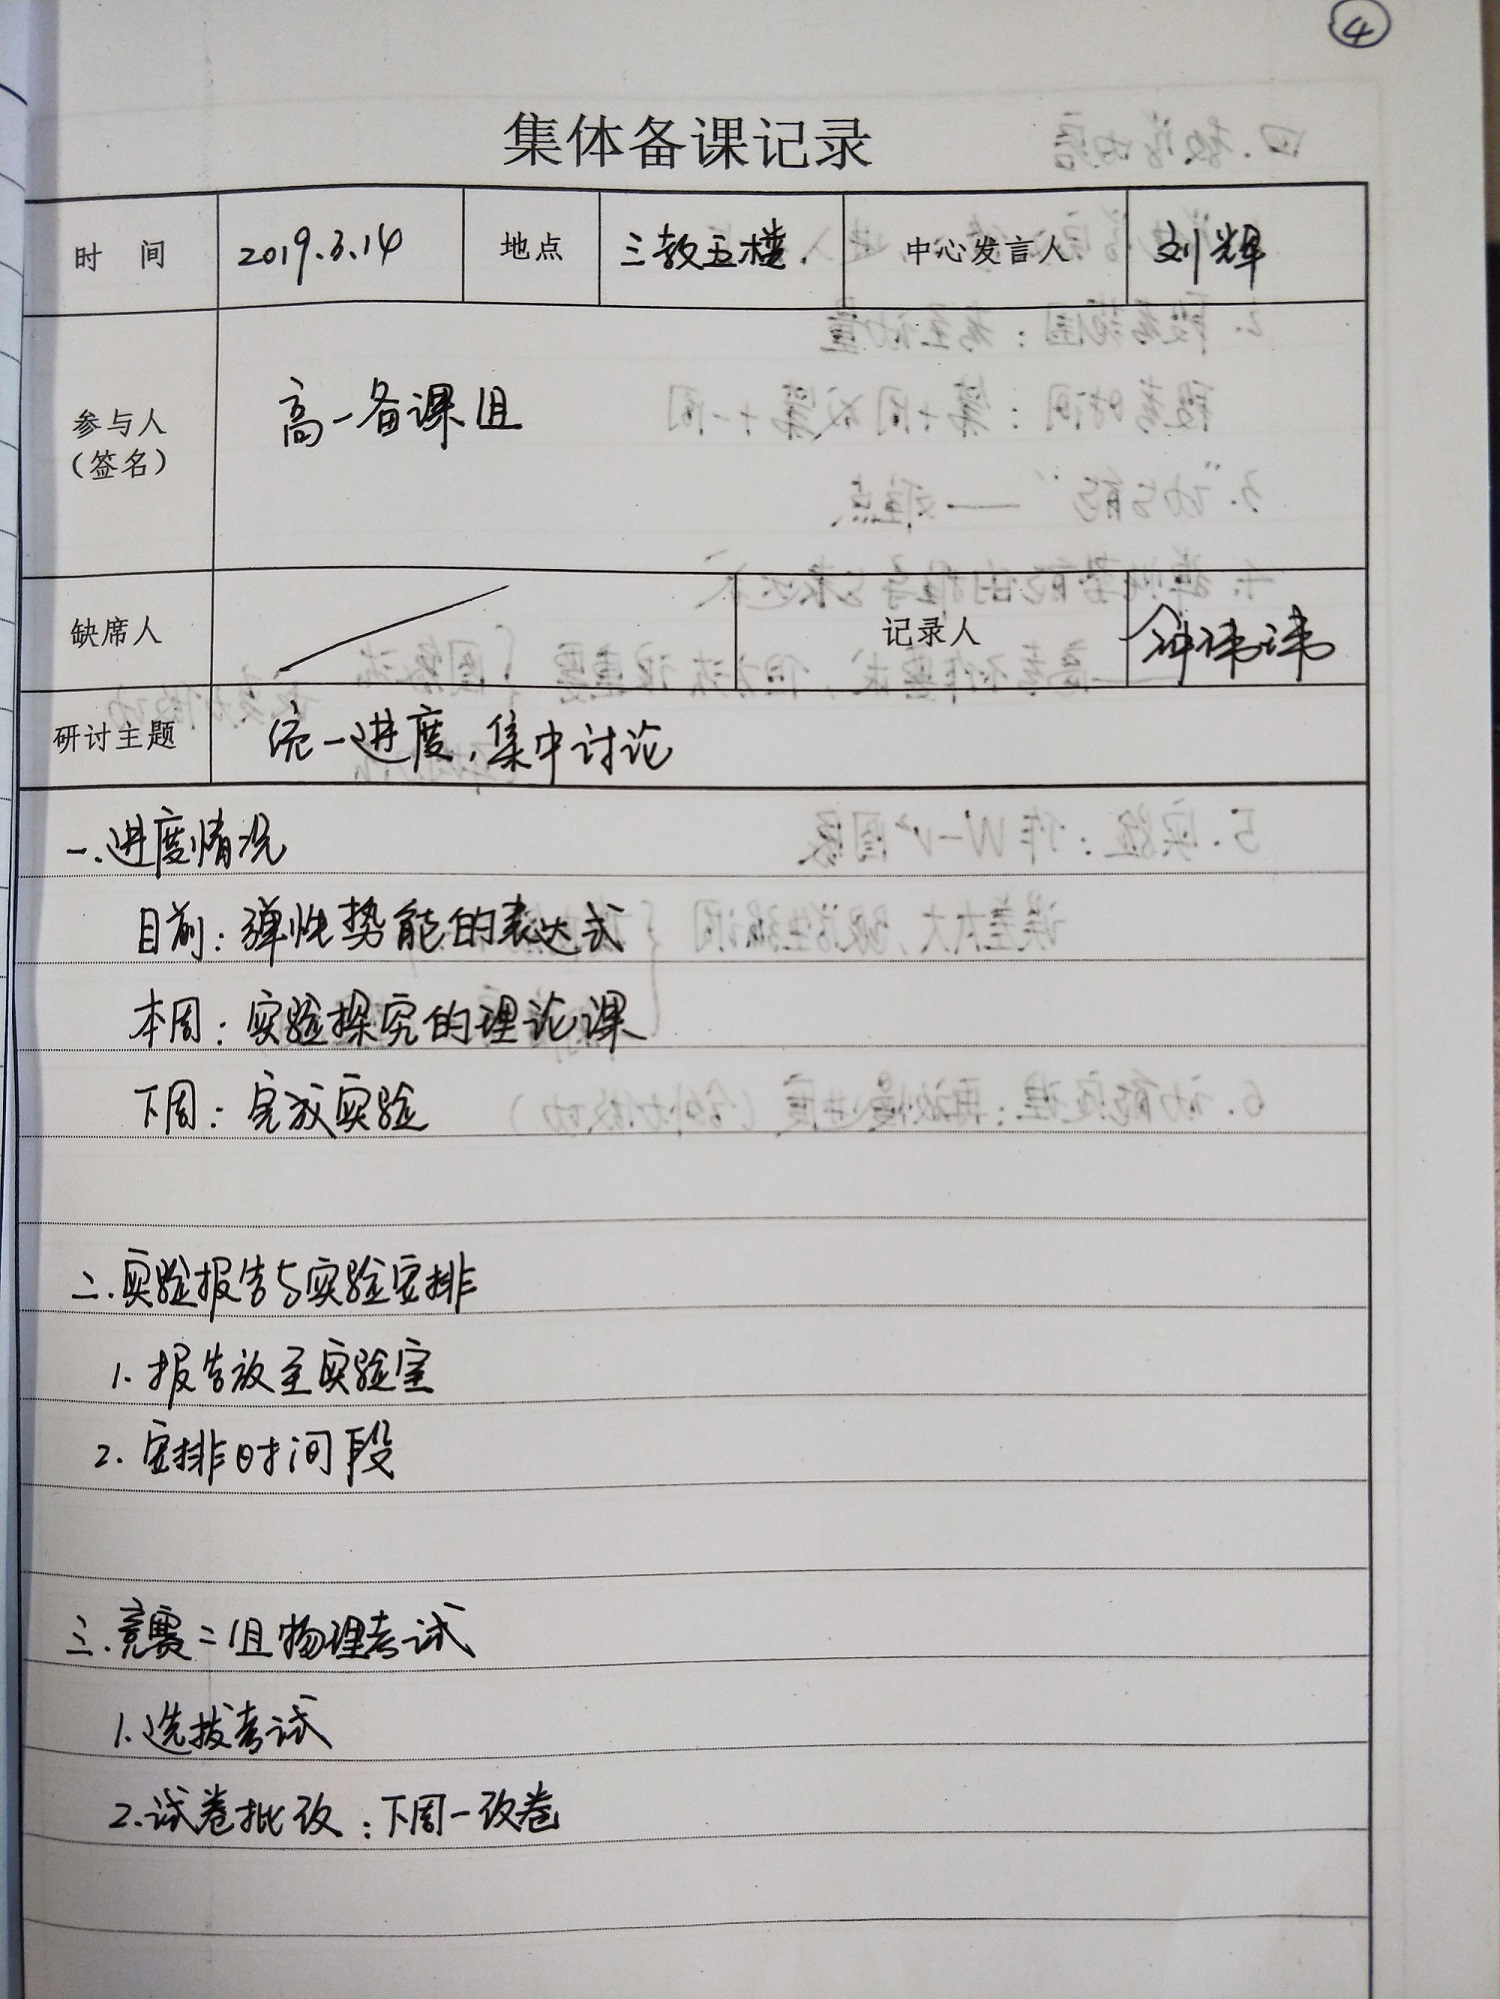 ④
集体备课记录
时 间 2019.3.14 地点 三教五楼. 中心发言人 刘辉
参与人
（签名） 高一备课组
缺席人 记录人
研讨主题 统一进度,集中讨论
一.进度情况
目前:弹性势能的表达式
本周:实验探究的理论课
下周:完成实验
二.实验报告与实验安排
1.报告放至实验室
2.安排时间段
三.竞赛二组物理考试
1.选拔考试
2.试卷批改:下周一改卷